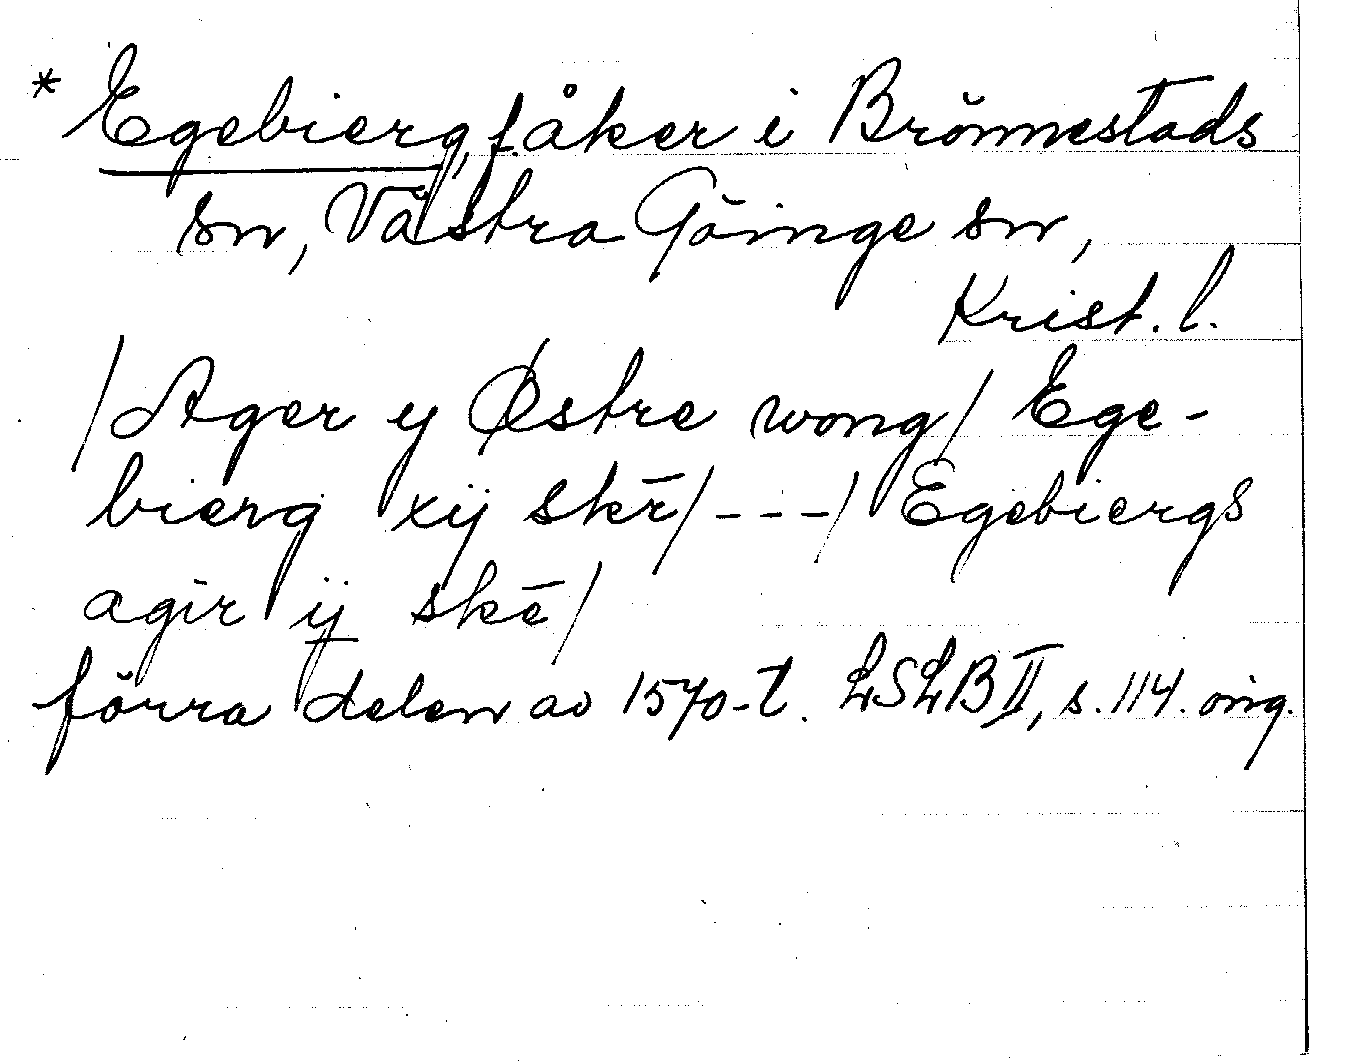 * Egebierg, f. åker i Brönnestads
sn, Västra Göinge sn,
Krist. l.
/Ager y Østre wong/ Ege-
bierg xij skē/ - - - / Egebiergs
agir ij skē/
förra delen av 1570-t. LSLB II, s. 114. orig.